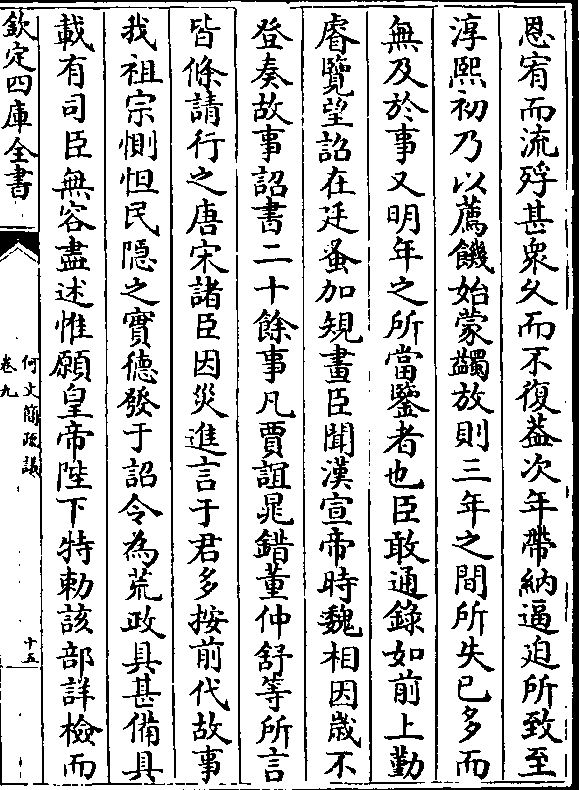 恩宥而流殍甚衆久而不復葢次年帶納逼迫所致至
淳熙初乃以薦饑始蒙蠲放則三年之間所失已多而
無及於事又明年之所當鑒者也臣敢通錄如前上勤
睿覽望詔在廷蚤加規畫臣聞漢宣帝時魏相因歲不
登奏故事詔書二十餘事凡賈誼晁錯董仲舒等所言
皆條請行之唐宋諸臣因災進言于君多按前代故事
我祖宗惻怛民隠之實德發于詔令為荒政具甚備具
載有司臣無容盡述惟願皇帝陛下特勅該部詳檢而
欽定四庫全書
何文簡疏議
卷九
十五